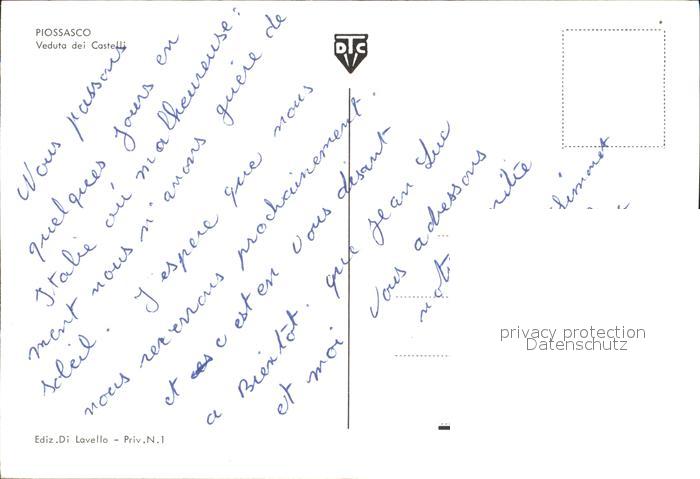 PIOSSASCO
Veduta dei Castelli
DTC
Nous passons
quelques jours en
Italie où malheureuse:
ment nous n'avons guère de
soleil. J'espère que nous
nous reverrons prochainement.
et c'est en vous disant
a Bientôt. que Jean Luc
et moi vous adressons
privacy protection
Datenschutz
Ediz. Di Lavello - Priv. N. 1